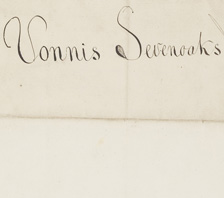 Vonnis Sevenoaks